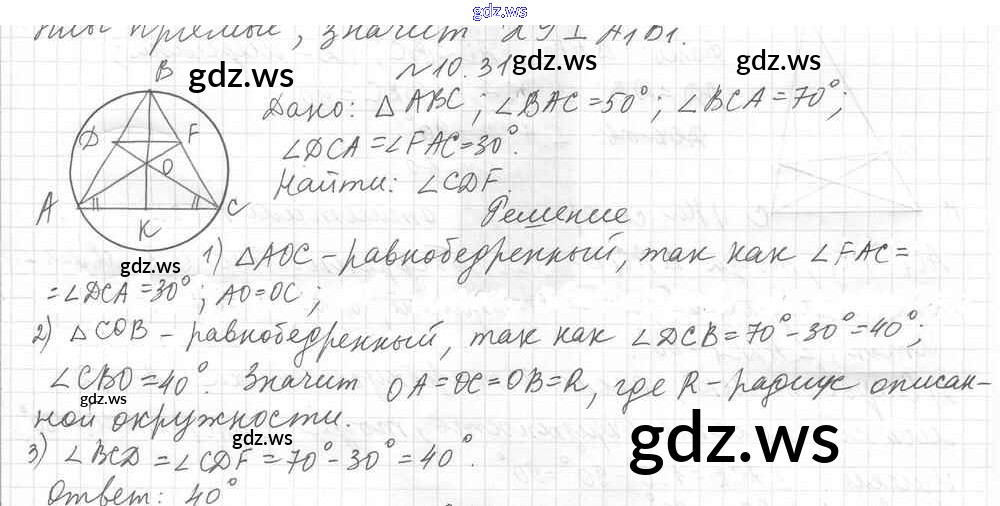 gdz.ws
прямые, значит XY ⊥ A₁D₁.
№10.31
gdz.ws
gdz.ws
gdz.ws
B
D
F
O
A
K
C
Дано: △ABC; ∠BAC=50°; ∠BCA=70°;
∠DCA=∠FAC=30°.
Найти: ∠CDF.
Решение
1) △AOC - равнобедренный, так как ∠FAC=
gdz.ws
=∠DCA=30°; AO=OC;
2) △COB - равнобедренный, так как ∠DCB=70°-30°=40°;
∠CBO=40°. Значит OA=OC=OB=R, где R - радиус описан-
gdz.ws
ной окружности.
gdz.ws
gdz.ws
3) ∠BCD=∠CDF=70°-30°=40°.
Ответ: 40°